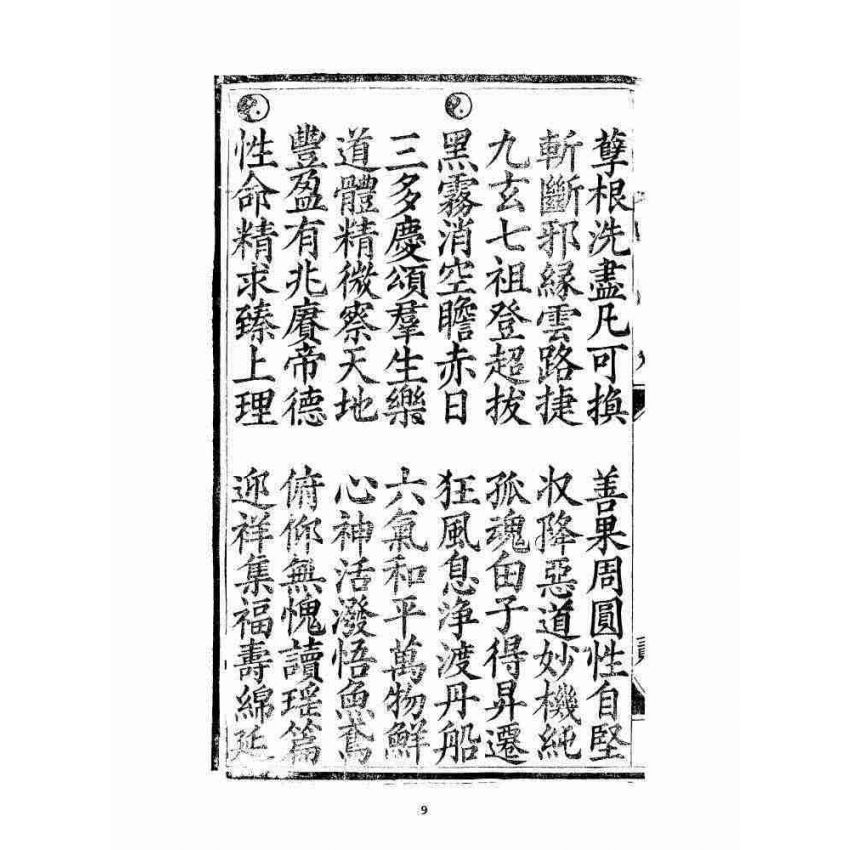 孽根洗盡凡可換 善果周圓性自堅
斬斷邪緣雲路捷 収降惡道妙機純
九玄七祖登超拔 孤魂甶子得昇遷
黑霧消空瞻赤日 狂風息浄渡丹船
三多慶頌羣生樂 六氣和平萬物鮮
道體精微察天地 心神活潑悟魚鳶
豐盈有兆賡帝德 俯仰無愧讀瑶篇
性命精求臻上理 迎祥集福壽綿延
9